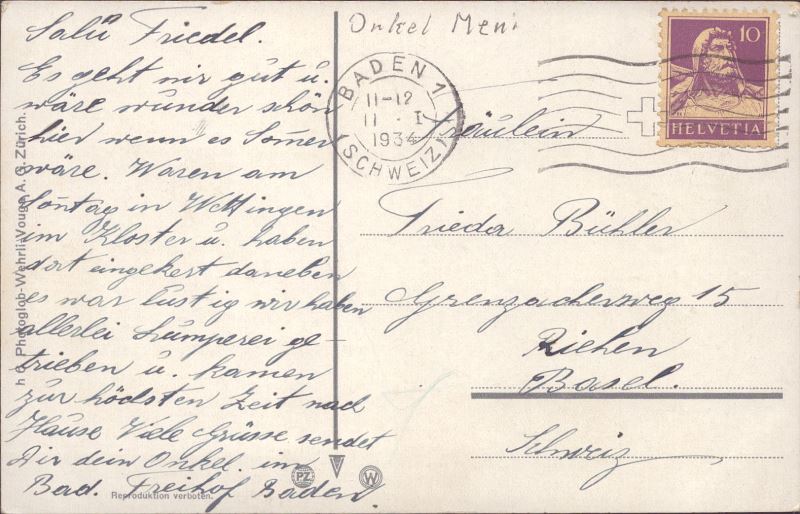 Salü Friedel.
Es geht mir gut u.
wäre wunder schön
hier wenn es Som̄er
wäre. Waren am
Son̄tag in Wettingen
im Kloster u. haben
dort eingekert daneben
es war lustig wir haben
allerlei Lumperei ge-
trieben u. kamen
zur höchsten Zeit nach
Hause Viele Grüsse sendet
Dir dein Onkel. im
Bad. Freihof Baden
Photoglob-Wehrli-Vouga A. G. Zürich.
Reproduktion verboten.
PZ
W
Onkel
BADEN 1
11-12
11 · I
1934
(SCHWEIZ)
10
HELVETIA
Fräulein
Frieda Bühler
Grenzacherweg 15
Riehen
Basel.
Schweiz